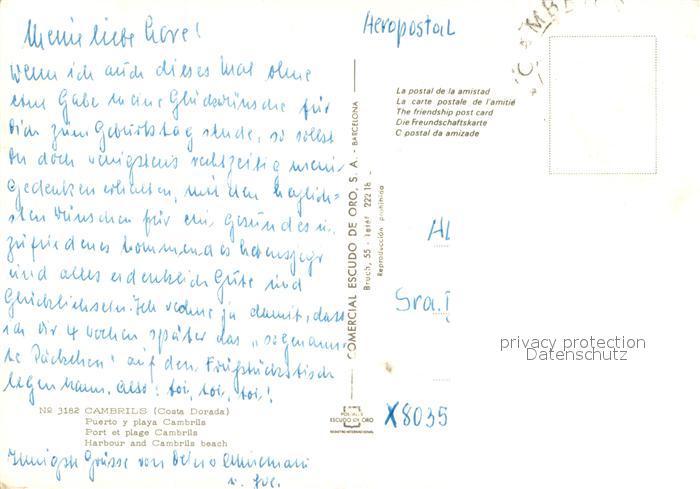 Meine liebe Lore!
Wenn ich auch dieses Mal ohne
eine Gabe meine Glückwünsche für
Dich zum Geburtstag sende, so sollst
Du doch wenigstens rechtzeitig mein
Gedenken erhalten, mit den herzlich=
sten Wünschen für ein gesundes u.
zufriedenes kommendes Lebensjahr
und alles erdenklich Gute und
Glücklichsein. Ich rechne ja damit, dass
ich Dir 4 Wochen später das "sogenann-
te Päckchen" auf den Frühstückstisch
legen kann. Also: toi, toi, toi!
Nº 3182 CAMBRILS (Costa Dorada)
Puerto y playa Cambrils
Port et plage Cambrils
Harbour and Cambrils beach
Innigste Grüsse von
COMERCIAL ESCUDO DE ORO, S. A. - BARCELONA
Bruch, 55 - Teléf. 222 18
Reproducción prohibida
POSTALES
ESCUDO DE ORO
Aeropostal
CAMBR
La postal de la amistad
La carte postale de l'amitié
The friendship post card
Die Freundschaftskarte
O postal da amizade
Al
Sra.
X8035
privacy protection
Datenschutz